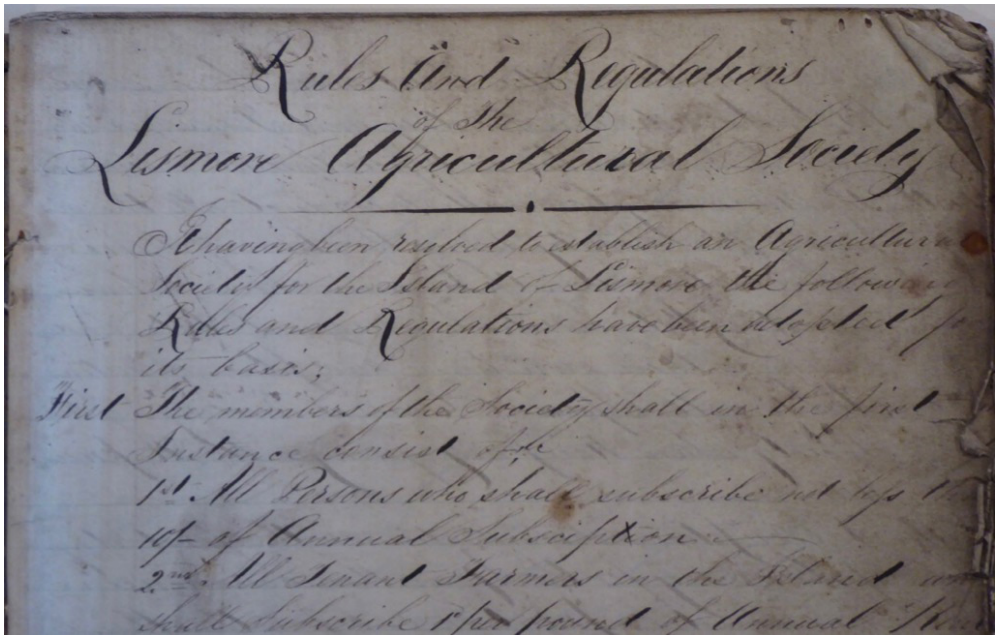 Rules And Regulations
of the
Lismore Agricultural Society
It having been resolved to establish an Agricultura
Society for the Island of Lismore the followin
Rules and Regulations have been adopted fo
its basis;
First The members of the Society shall in the first
Instance consist of
1st. All Persons who shall subscribe not less th
10/- of Annual Subsciption
2nd. All Tenant Farmers in the Island
shall Subscribe per pound of Annual